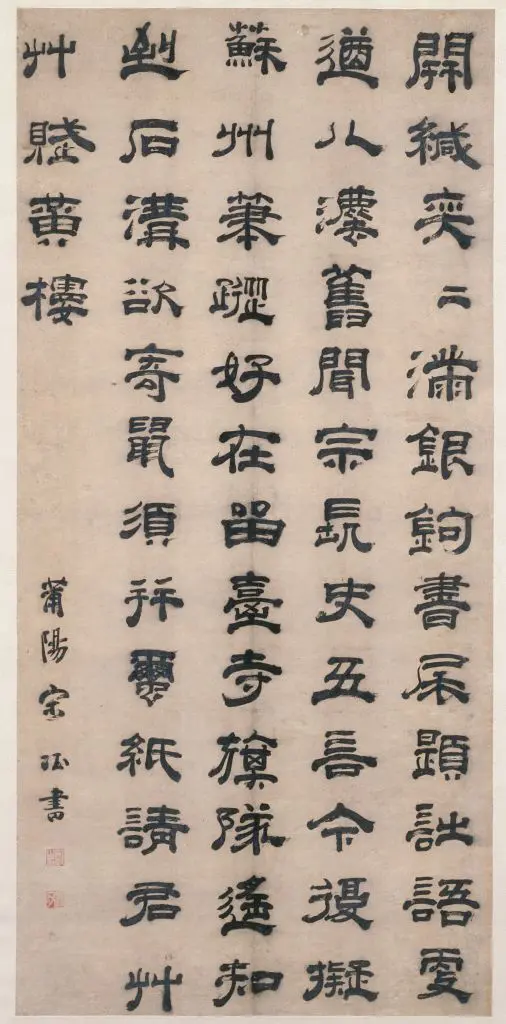 開緘奕二滿銀鉤書尾題詩語更
遒八法舊聞宗長史五言今復擬
蘇州筆蹤好在留臺寺旗隊遙知
到石溝欲寄鼠須并繭紙請君艸
艸賦黃樓
莆陽宋珏書